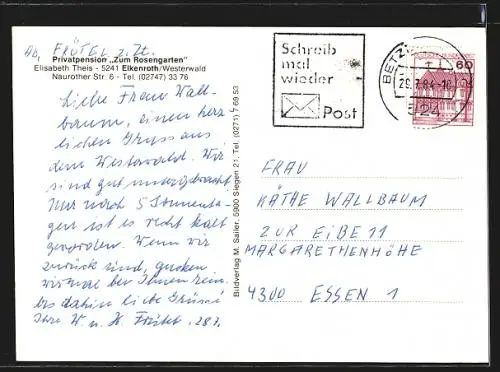 Ab. FRÖTEL z. Zt.
Privatpension „Zum Rosengarten"
Elisabeth Theis - 5241 Elkenroth/Westerwald
Naurother Str. 6 - Tel. (02747) 33 76
Liebe Frau Wall-
baum, einen herz
lichen Gruss aus
dem Westerwald. Wir
sind gut untergebracht
Nur nach 5 Sonnenta-
gen ist es recht kalt
geworden. Wenn wir
zurück sind, gucken
wir mal bei Ihnen rein,
bis dahin liebe Grüsse
Ihre W. u. H. Frötel, 28.7.
Bildverlag M. Sailer, 5900 Siegen 21, Tel. (0271) 7 69 53
Schreib
mal
wieder
Post
BETZ
29.7.84-10
524
60
FRAU
KÄTHE WALLBAUM
ZUR EIBE 11
MARGARETHENHÖHE
4300 ESSEN 1